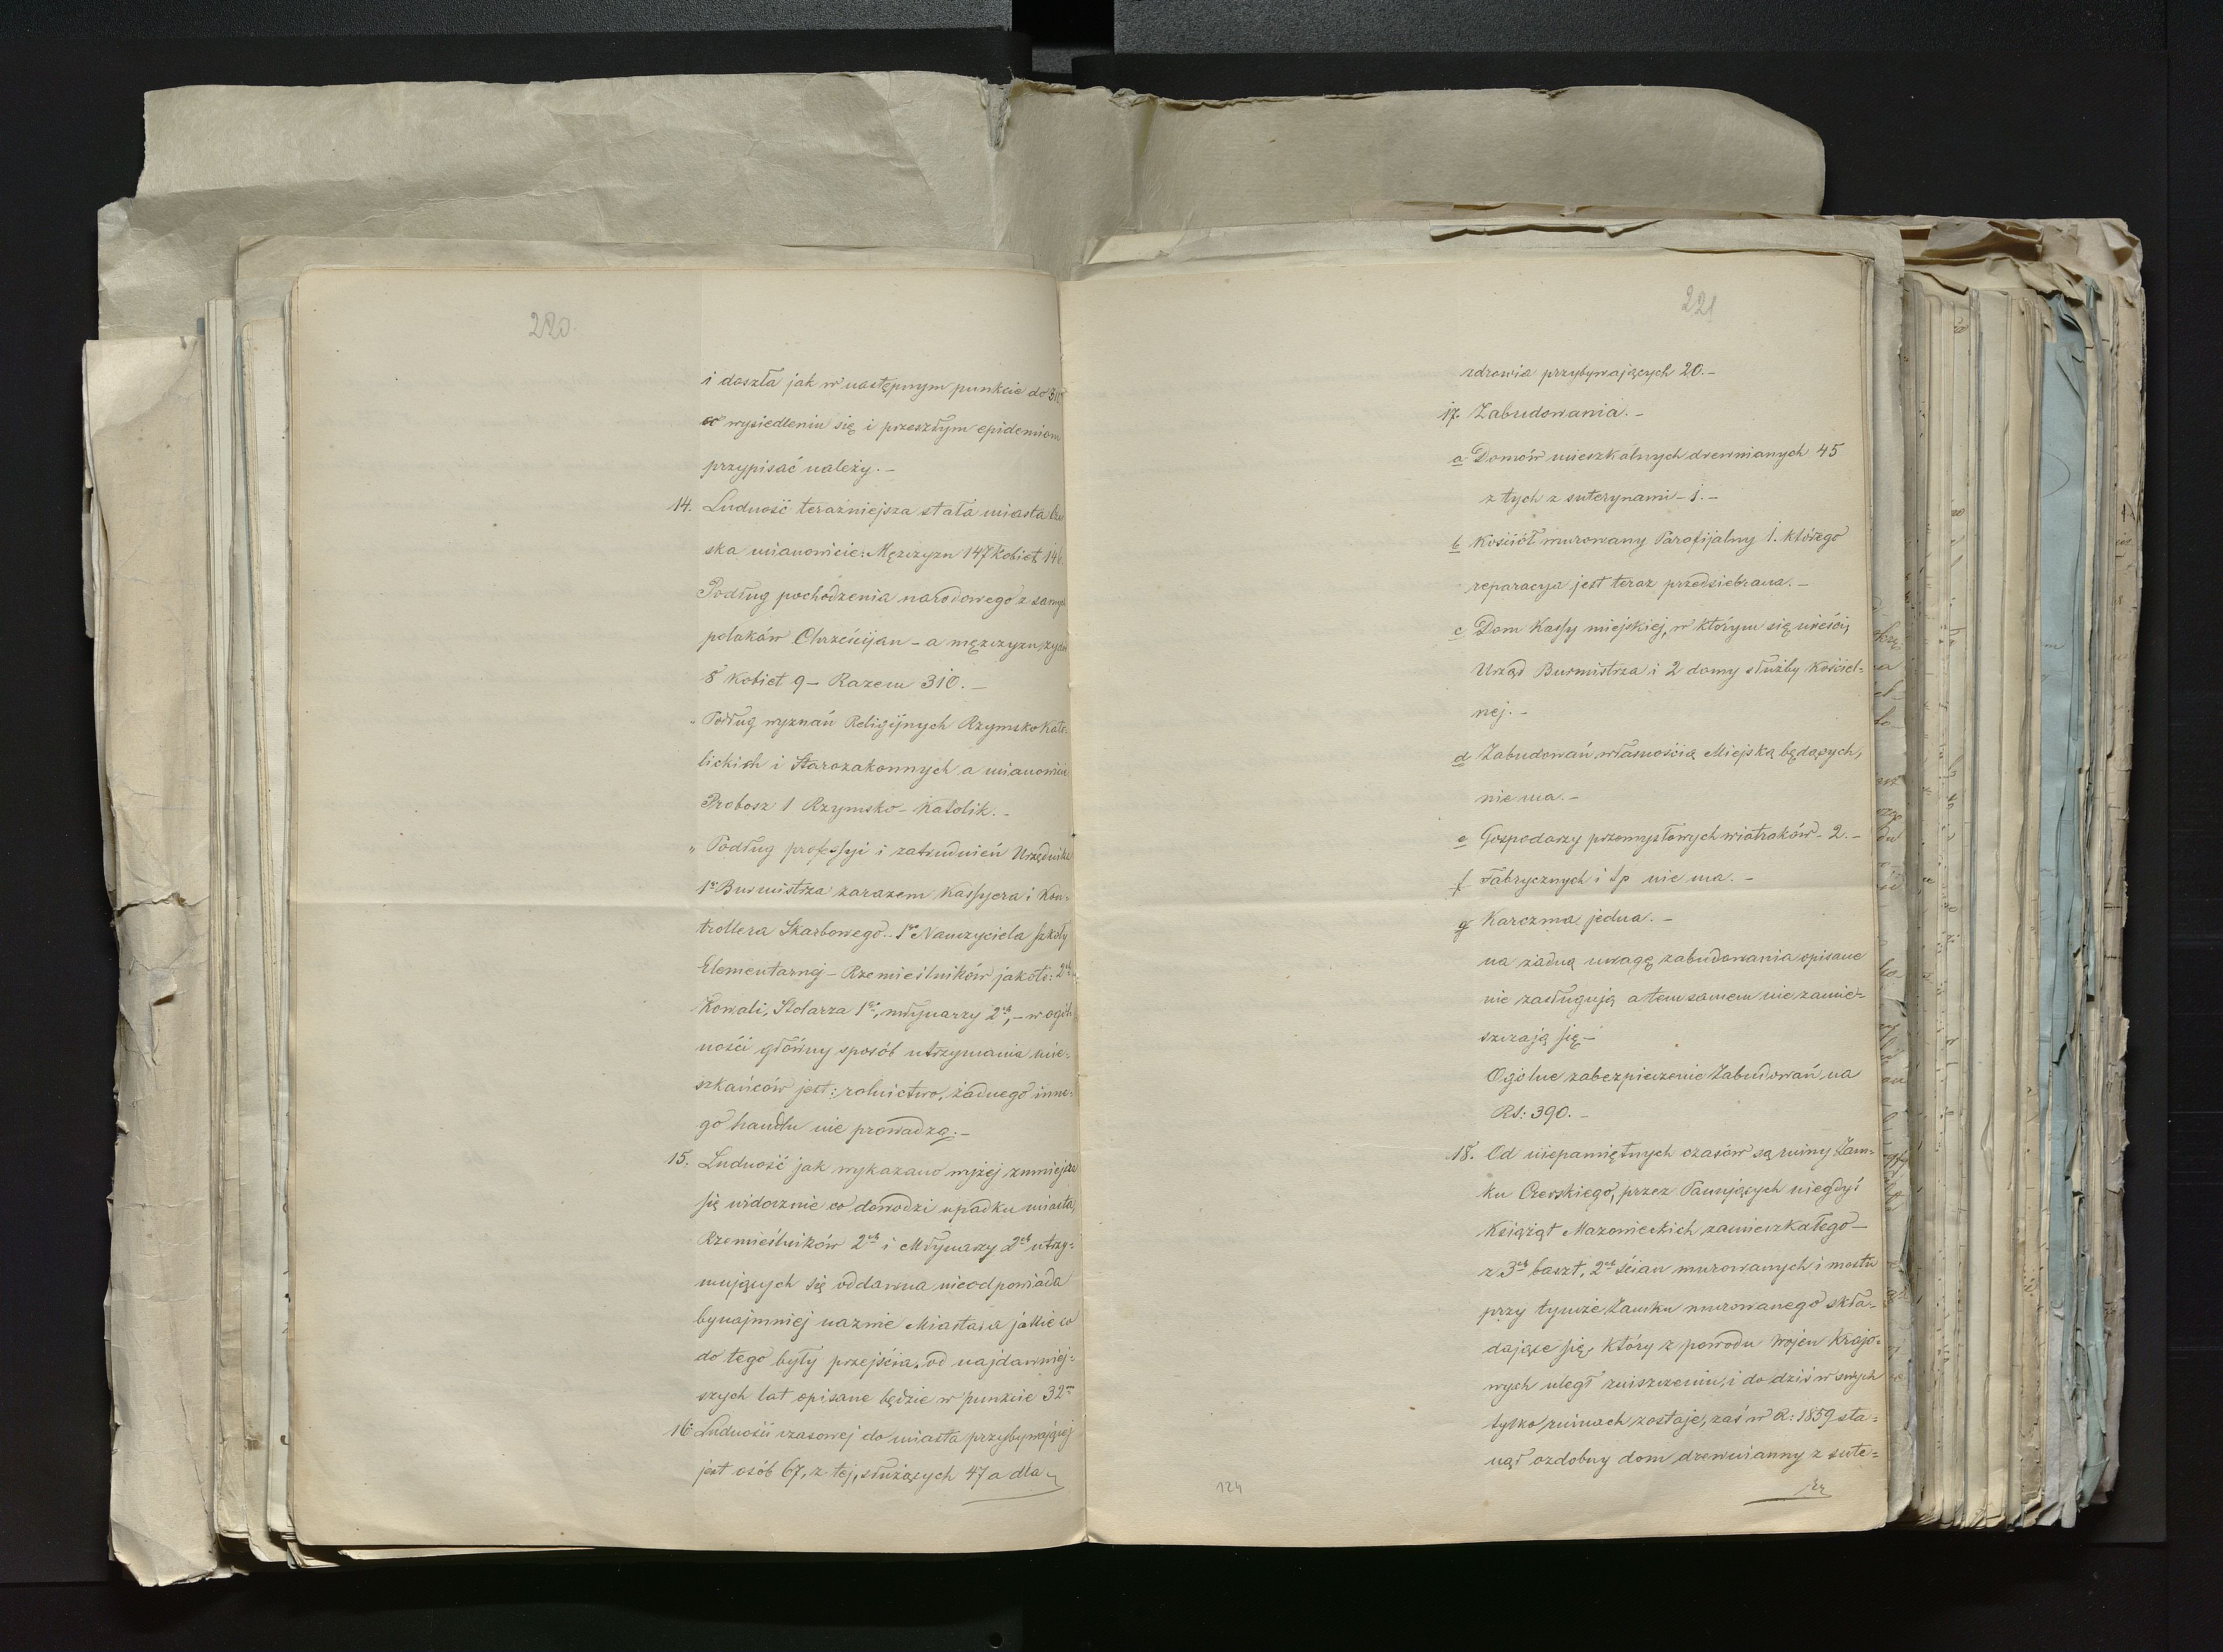 220.
i doszła jak w następnym punkcie do 310
co wysiedleniu się i przeszłym epidemiom
przypisać należy. –
14. Ludność teraźniejsza stała miasta Czer
ska mianowicie: Mężczyzn 147 Kobiet 146.
Podług pochodzenia narodowego z samych
polaków Chrześcijan – a mężczyzn żydów
8 Kobiet 9 – Razem 310. –
„ Podług wyznań Religijnych Rzymsko Kato-
lickich i Starozakonnych a mianowicie
Probosz 1 Rzymsko-Katolik. –
„ Podług professyi i zatrudnień Urzędnika
1go Burmistrza zarazem Kassyera i Kon-
trollera Skarbowego. – 1go Nauczyciela szkoły
Elementarnej – Rzemieślników jakoto: 2ch
Kowali, Stolarza 1go, młynarzy 2ch, – w ogól
ności główny sposób utrzymania mie-
szkańców jest: rolnictwo, żadnego inne-
go handlu nie prowadzą. –
15. Ludność jak wykazano wyżej zmniejsza
się widocznie co dowodzi upadku miasta,
Rzemieślników 2ch i Młynarzy 2ch utrzy-
mujących się oddawna nieodpowiada
bynajmniej nazwie Miasta, a jakie co
do tego były przejścia, od najdawniej-
szych lat opisane będzie w punkcie 32m
16. Ludności czasowej do miasta przybywającej
jest osób 67, z tej, służących 47 a dla
221
zdrowia przybywających 20. –
17. Zabudowania. –
a Domów mieszkalnych drewnianych 45
z tych z suterynami – 1. –
b Kościół murowany Parafijalny 1. którego
reparacya jest teraz przedsiebrana. –
c Dom Kassy miejskiej, w którym się mieści,
Urząd Burmistrza i 2 domy służby Kościel-
nej. –
d Zabudowań własnością Miejską będących,
nie ma. –
e Gospodarzy przemysłowych wiatraków – 2. –
f Fabrycznych i t p nie ma. –
g Karczma jedna. –
na żadną uwagę zabudowania opisane
nie zasługują a tem samem nie zamie-
szczają się –
Ogólne zabezpieczenie Zabudowań na
Rs: 390. –
18. Od niepamiętnych czasów są ruiny Zam-
ku Czerskiego, przez Panujących niegdyś
Książąt Mazowieckich zamieszkałego –
z 3ch baszt, 2ch ścian murowanych i mostu
przy tymże Zamku murowanego skła-
dające się, który z powodu wojen Krajo-
wych uległ zniszczeniu, i do dziś w swych
tylko ruinach zostaje, zaś w R: 1859 sta-
nął ozdobny dom drewnianny z sute-
124